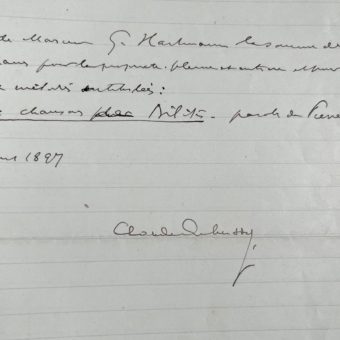 de Monsieur G. Hartmann la somme de
pour la propriété pleine et entière et pour
mélodies intitulées :
chansons de Bilitis - paroles de Pierre
1897
Claude Debussy